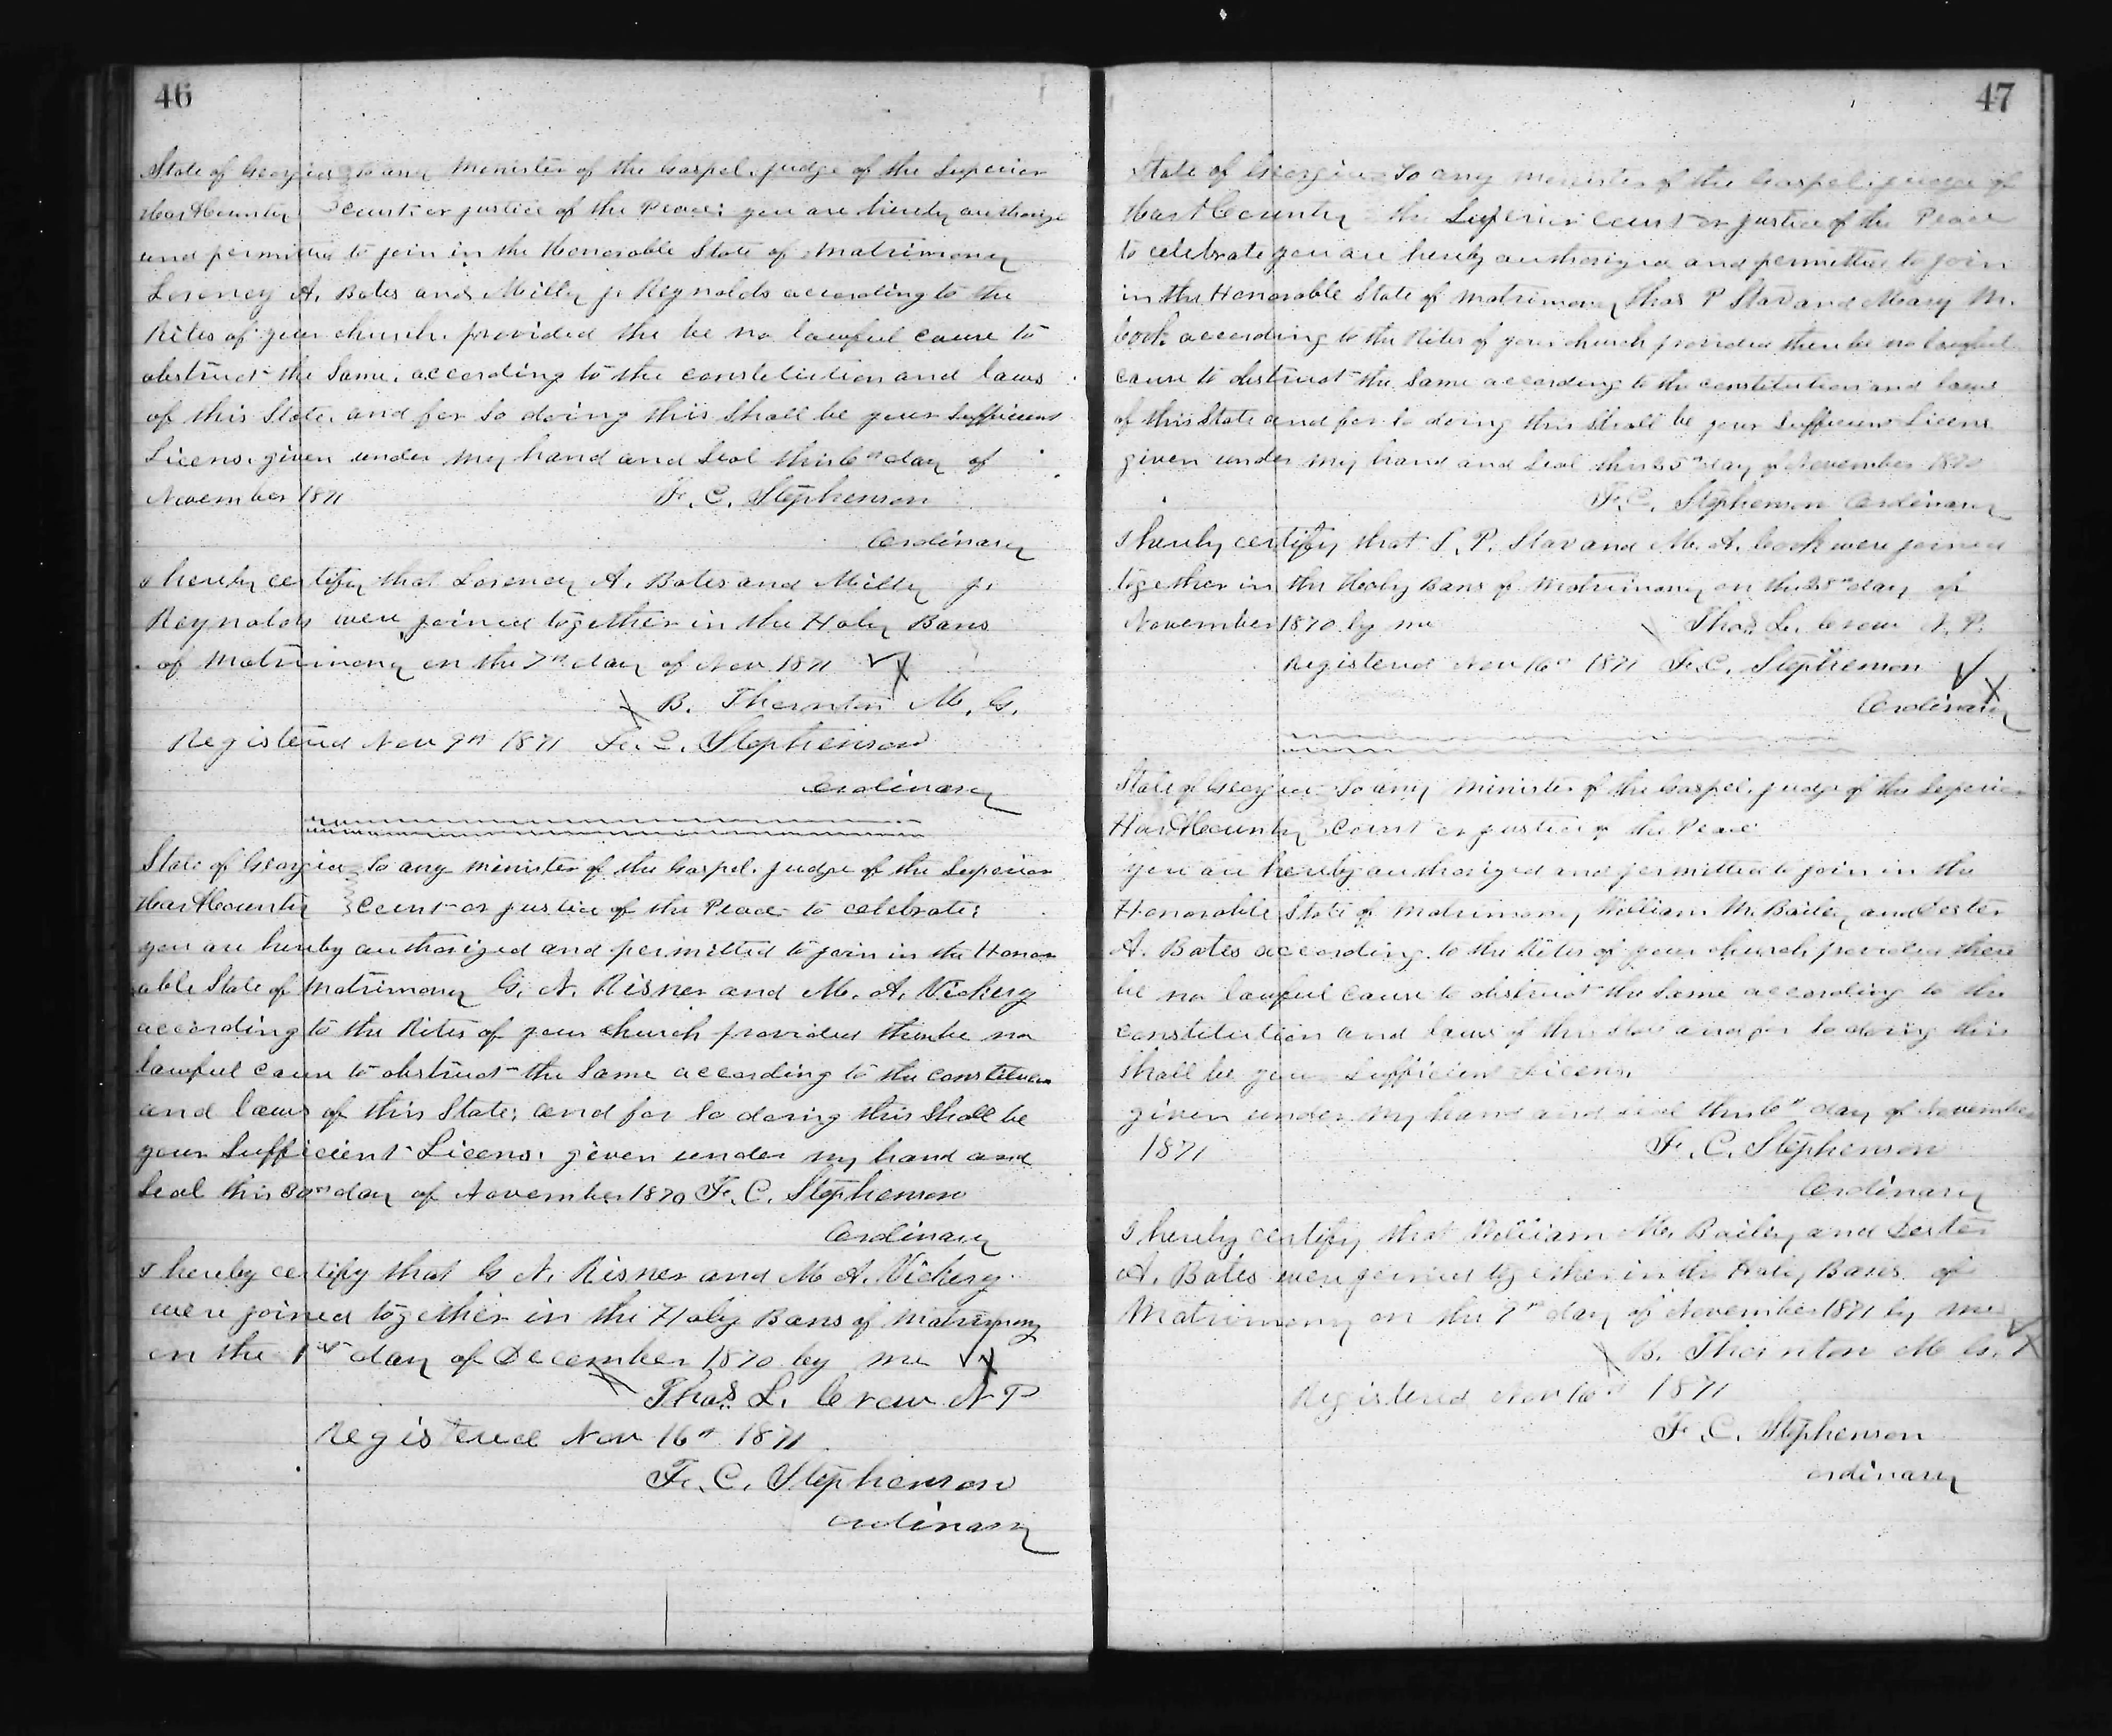 46
State of Georgia To any Minister of the Gospel. judge of the Superior
Hart County Court or justice of the Peace; you are hereby authorize
and permitted to join in the Honorable State of Matrimony
Lorency A. Bates and Milly J. Reynolds according to the
Rites of your church. provided the be no lawful cause to
obstruct the Same. according to the constitution and laws
of this State. and for So doing this Shall be your Sufficient
Licens. given under my hand and Seal this 6th day of
November 1871 F. C. Stephenson
Ordinary
I hereby certify that Lorency A. Bates and Milly J.
Reynolds were joined together in the Holy Bans
of Matrimony on the 7th day of Nov 1871
B. Thornton M. G.
Registered Nov 9th 1871 F. C. Stephenson
Ordinary
State of Georgia To any minister of the Gospel. judge of the Superior
Hart County Court or justice of the Peace to celebrate;
you are hereby authorized and permitted to join in the Honor
able State of Matrimony G. N. Risner and M. A. Vickery
according to the Rites of your church provided there be no
lawful cause to obstruct the Same according to the constitution
and laws of this State; and for So doing this Shall be
your Sufficient Licens. given under my hand and
Seal this 30th day of November 1870 F. C. Stephenson
Ordinary
I hereby certify that G N. Risner and M A. Vickery
were joined together in the Holy Bans of Matrimony
on the 1st day of December 1870 by me
Thos. L. Crew N P
Registered Nov 16th 1871
F. C. Stephenson
Ordinary
47
State of Georgia To any minister of the Gospel. judge of
Hart County the Superior Court or justice of the Peace
to celebrate you are hereby authorized and permitted to join
in the Honorable State of Matrimony Thos P and Mary M.
Cook according to the Rites of your church provided there be no lawful
cause to obstruct the Same according to the constitution and laws
of this State and for So doing this Shall be your Sufficient Licens
given under my hand and Seal this day of November 1870
F. C. Stephenson Ordinary
I hereby certify that P. and M. A. Cook were joined
together in the Holy Bans of Matrimony on the day of
November 1870 by me Thos. L. Crew N. P.
Registered Nov 16th 1871 F. C. Stephenson
Ordinary
State of Georgia To any Minister of the Gospel. judge of the Superior
Hart County Court or justice of the Peace
you are hereby authorized and permitted to join in the
Honorable State of Matrimony William M. Bailey and
A. Bates according to the Rites of your church provided there
be no lawful cause to obstruct the Same according to the
constitution and laws of this State and for So doing this
Shall be your Sufficient Licens.
given under my hand and Seal this 6th day of November
1871 F. C. Stephenson
Ordinary
I hereby certify that William M. Bailey and
A. Bates were joined together in the Holy Bans of
Matrimony on the 7th day of November 1871 by me
B. Thornton M G.
Registered Nov 1871
F. C. Stephenson
Ordinary